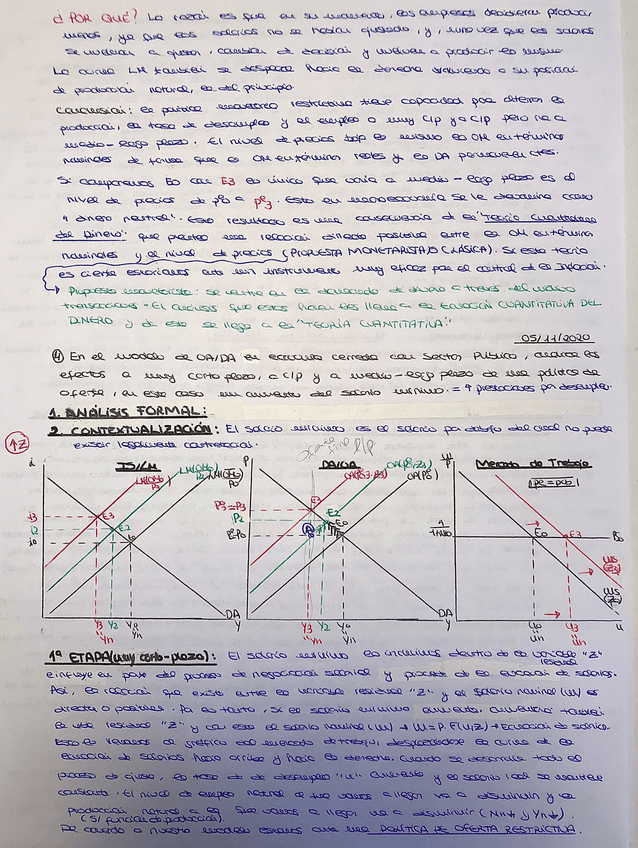 ¿POR QUÉ? La razón es que en su momento, las empresas decidieron producir
menos, ya que los salarios no se habían ajustado, y, una vez que los salarios
se vuelven a ajustar, cambian de decisión y vuelven a producir lo mismo
La curva LM también se desplaza hacia la derecha volviendo a su posición
de producción natural, la del principio.
Conclusión: la política monetaria restrictiva tiene capacidad para alterar la
producción, la tasa de desempleo y el empleo a muy C/p y a C/p pero no a
medio-largo plazo. El nivel de precios baja lo mismo la OM en términos
nominales de forma que la OM en términos reales y la DA permanecen ctes.
Si comparamos E0 con E3 lo único que varía a medio-largo plazo es el
nivel de precios de P0 a P3. Esto en macroeconomía se le denomina como
"dinero neutral". Este resultado es una consecuencia de la "Teoría Cuantitativa
del Dinero" que plantea una relación directa positiva entre la OM en términos
nominales y el nivel de precios (PROPUESTA MONETARISTA O CLÁSICA). Si esta teoría
es cierta estaríamos ante un instrumento muy eficaz para el control de la Inflación.
Propuesta monetarista: se centra en la demanda de dinero a través del motivo
transacciones. El análisis que estos hacen les lleva a la ECUACIÓN CUANTITATIVA DEL
DINERO y de esta se llega a la "TEORÍA CUANTITATIVA."
05/11/2020
④ En el modelo de OA/DA en economía cerrada con Sector Público, analice los
efectos a muy corto plazo, a C/p y a medio-largo plazo de una política de
oferta, en este caso un aumento del salario mínimo. = prestaciones por desempleo.
1. ANÁLISIS FORMAL:
2. CONTEXTUALIZACIÓN: El salario mínimo es el salario por debajo del cual no puede
existir legalmente contratación.
↑Z
i IS/LM
P DA/OA
Mercado de Trabajo
Pe = P0
i3 i2 i0
E3 E2 E0
Y3 Y2 Y0
Yn Yn
DA
Y
P3 = P3
P2
E3 E2 E0
Y3 Y2 Y0
Yn Yn
DA
Y
E0 E3
WS
WS
u
1ª ETAPA (muy corto-plazo): El salario mínimo lo incluimos dentro de la variable residual "Z"
e influye en parte del proceso de negociación salarial y procede de la ecuación de salarios.
Así, la relación que existe entre la variable residual "Z" y el salario nominal (W) es
directa o positiva. Por lo tanto, si el salario mínimo aumenta, aumentará también
la vble residual "Z" y con esto el salario nominal (W) → W = P·F(u,z) → Ecuación de salarios.
Esto lo vemos en el gráfico del mercado de trabajo, desplazándose la curva de la
ecuación de salarios hacia arriba y hacia la derecha. Cuando se desarrolla todo el
proceso de ajuste, la tasa de desempleo "u" aumenta y el salario real se mantiene
constante. El nivel de empleo natural al que vamos a llegar va a disminuir y la
producción natural a la que vamos a llegar va a disminuir (Nn↓ y Yn↓).
(S/ función de producción).
De acuerdo a nuestro modelo estamos ante una POLÍTICA DE OFERTA RESTRICTIVA.